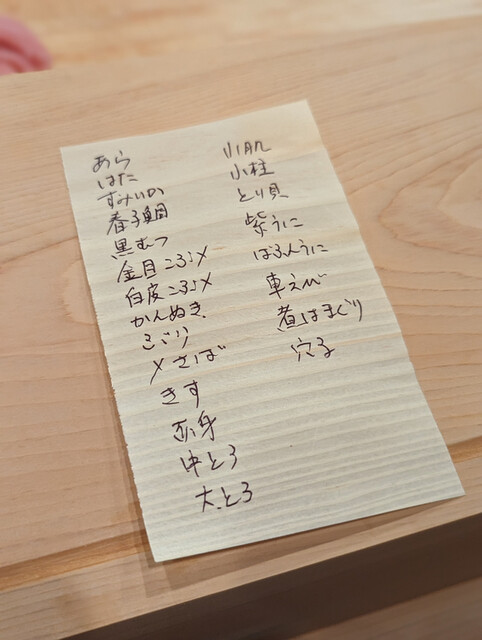 あら
はた
すみいか
春子鯛
黒むつ
金目こぶ〆
白皮こぶ〆
かんぬき
さより
〆さば
きす
赤身
中とろ
大とろ
小肌
小柱
とり貝
紫うに
ばふんうに
車えび
煮はまぐり
穴子